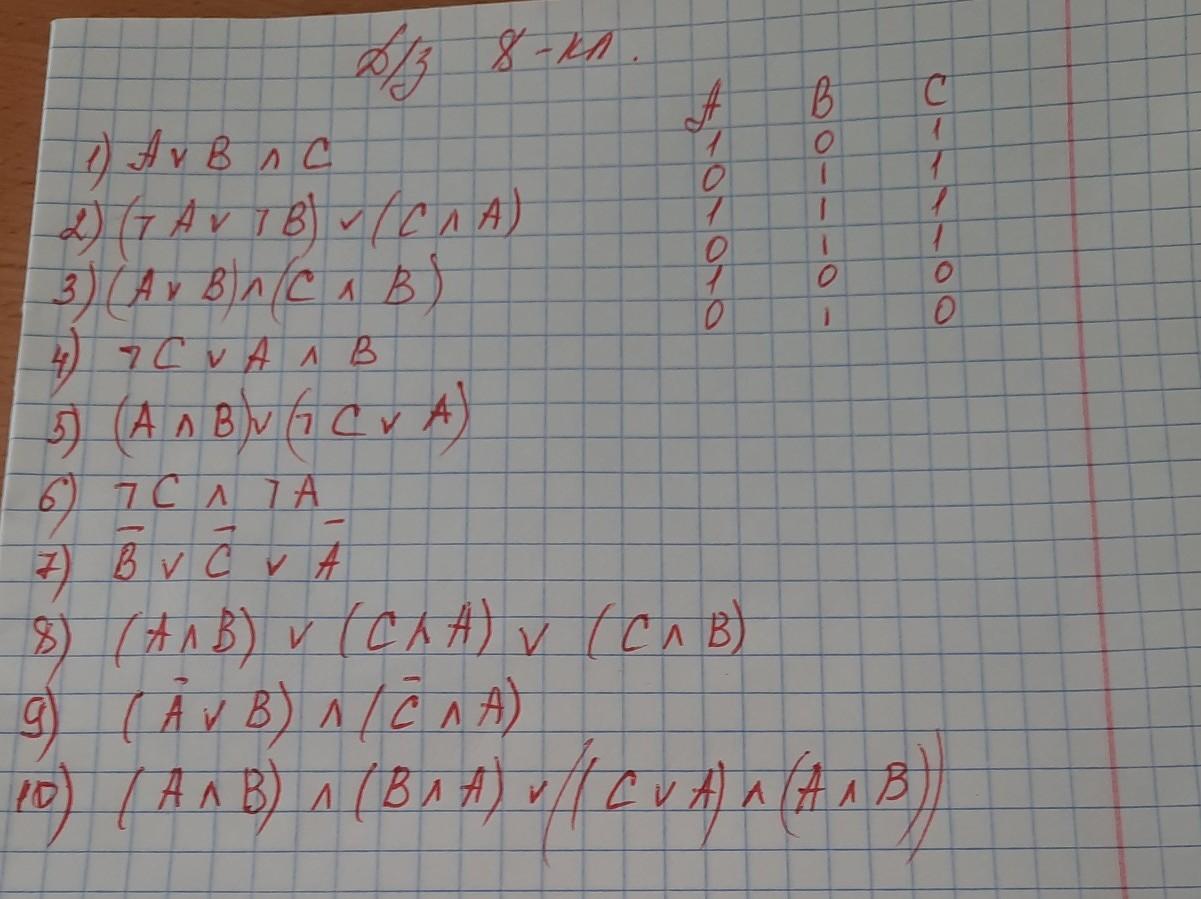 Д/з 8-кл.
A B C
1 0 1
0 1 1
1 1 1
0 1 1
1 0 0
0 1 0
1) A ∨ B ∧ C
2) (¬A ∨ ¬B) ∨ (C ∧ A)
3) (A ∨ B) ∧ (C ∧ B)
4) ¬C ∨ A ∧ B
5) (A ∧ B) ∨ (¬C ∨ A)
6) ¬C ∧ ¬A
7) B̅ ∨ C̅ ∨ A̅
8) (A ∧ B) ∨ (C ∧ A) ∨ (C ∧ B)
9) (A̅ ∨ B) ∧ (C̅ ∧ A)
10) (A ∧ B) ∧ (B ∧ A) ∨ ((C ∨ A) ∧ (A ∧ B))